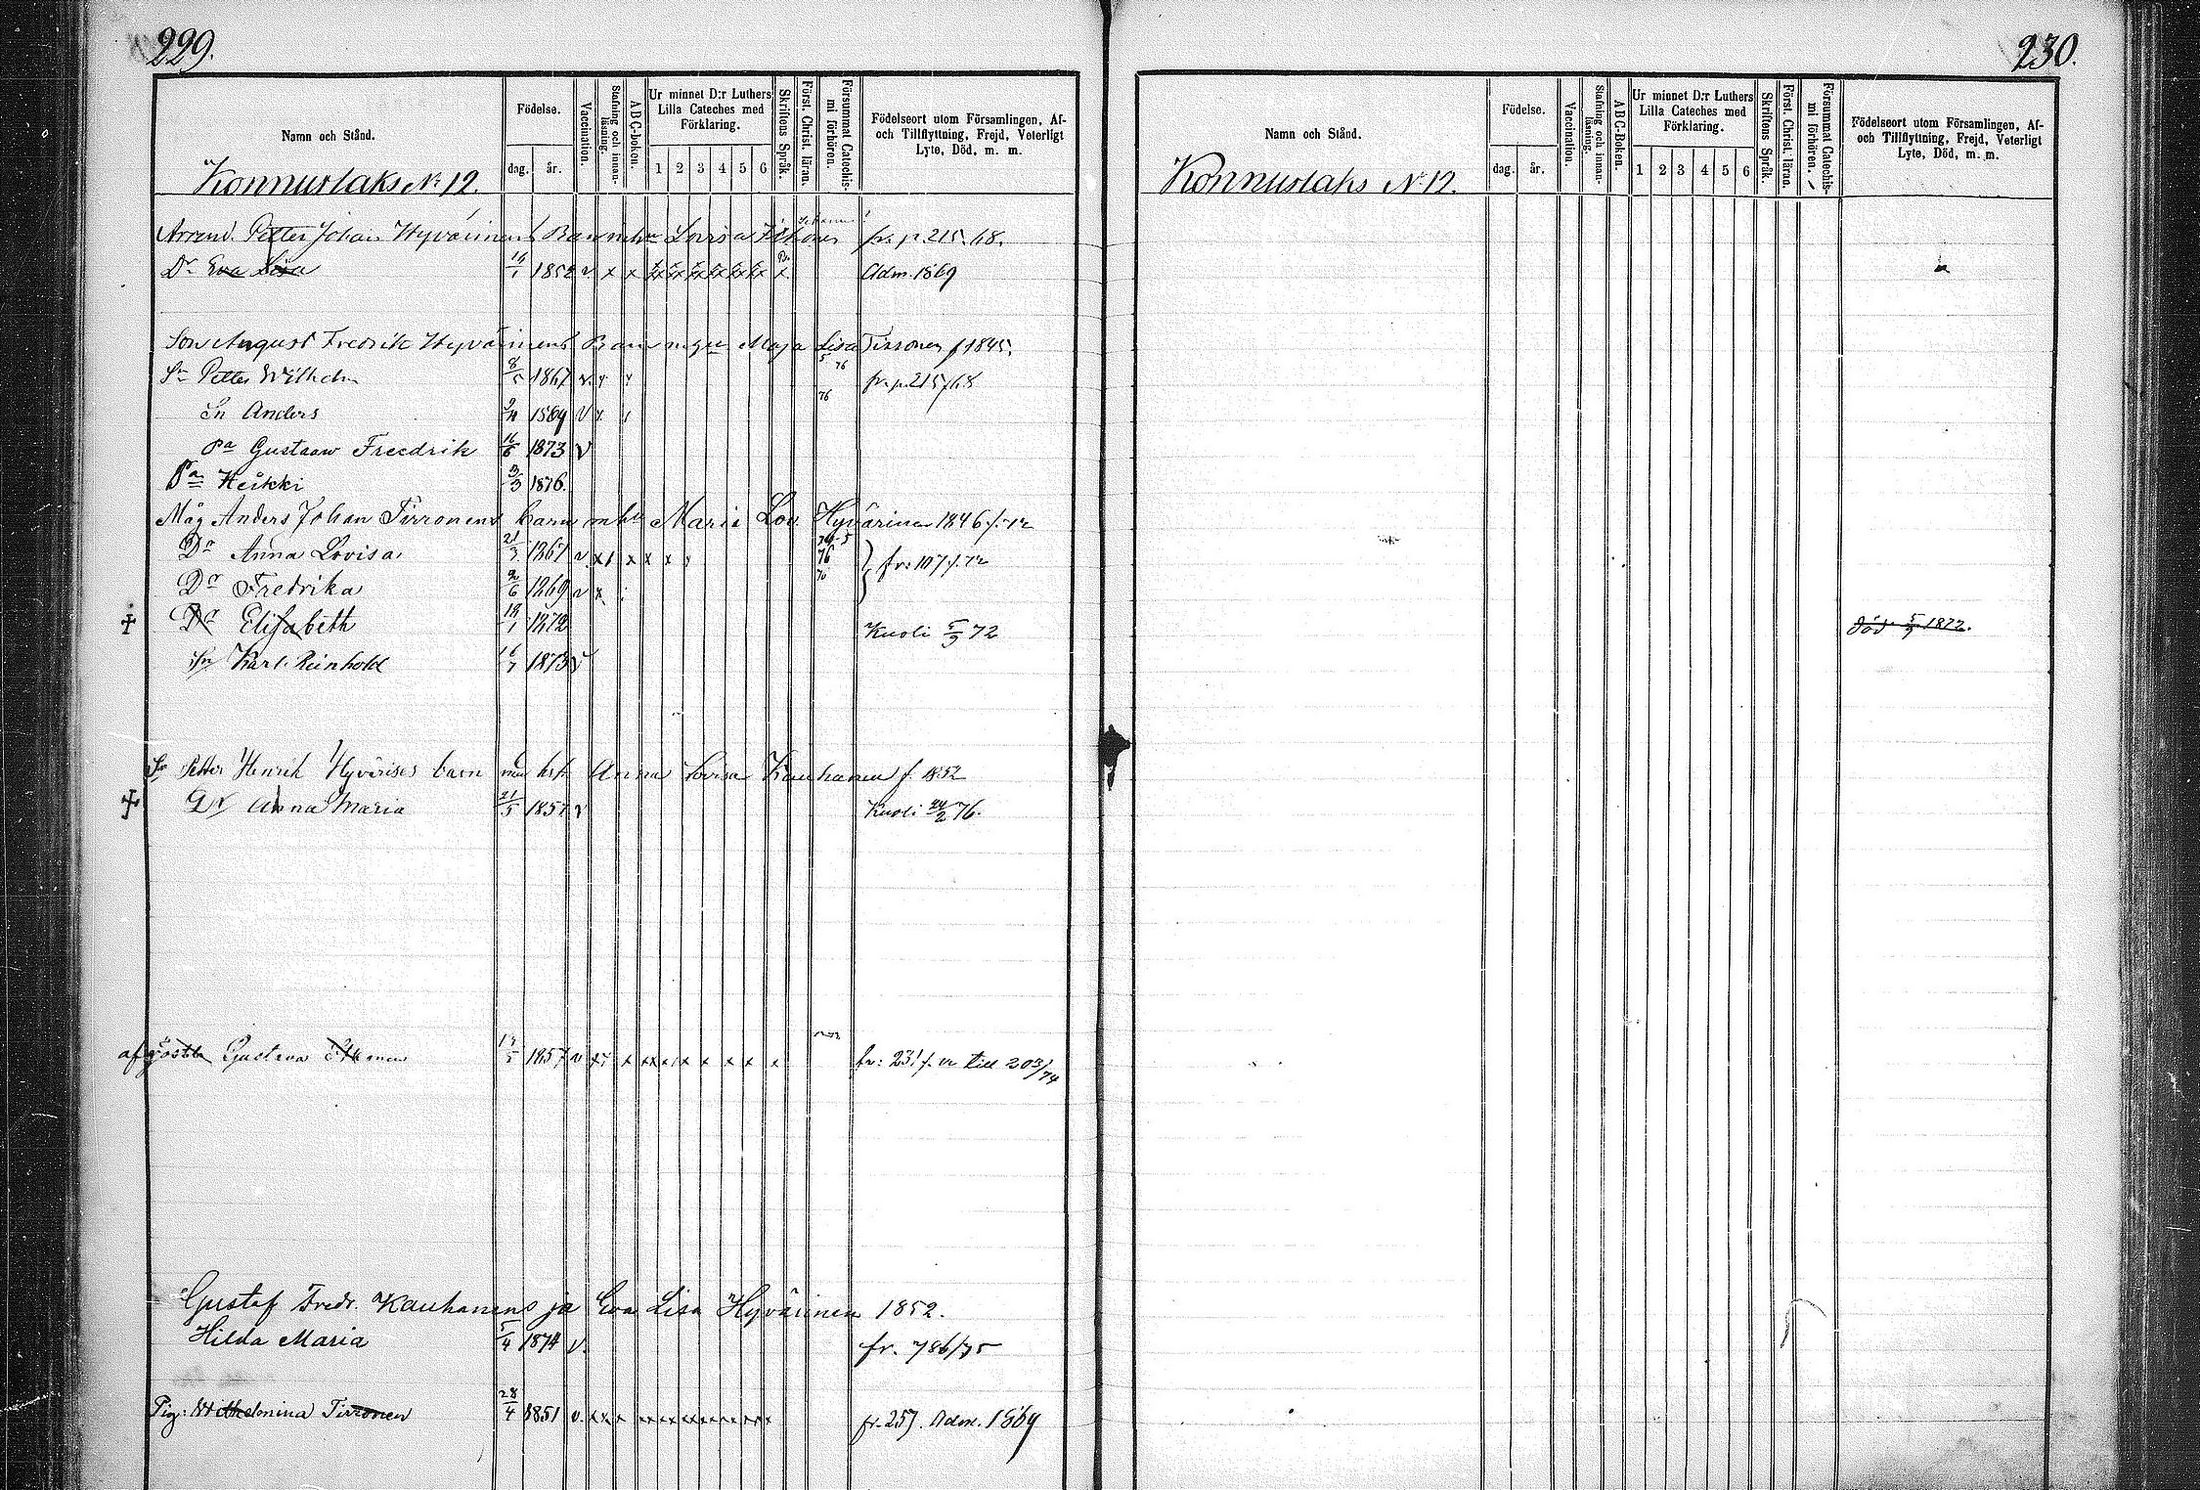 229.
Namn och Stånd.
Födelse.
dag. år.
Vaccination.
Stafning och innanläsning.
ABC-boken.
Ur minnet D:r Luthers Lilla Cateches med Förklaring.
1 2 3 4 5 6
Skriftens Språk.
Först. Christ. läran.
Försummat Catechismi förhören.
Födelseort utom Församlingen, Af- och Tillflyttning, Frejd, Veterligt Lyte, Död, m. m.
Konnuslaks No 12.
Arrend. Petter Johan Hyvärinens Barn m hu Lovisa fr. p. 215. 68.
Dr Eva Lisa 1852 v x x x Adm. 1869
Son August Fredrik Hyvärinens Barn m gu Maja Lisa Tirronen f 1845.
Sn Petter Wilhelm 8/5 1867 v. fr. p. 215/68
5 76
76
Sn Anders 1869 v x
Pa Gustaaw Freedrik 16/6 1873 v
Pa Heikki 3/3 1876.
Måg Anders Johan Tirronens barn m hu Maria Lov. Hyvärinen 1846 f. 72
Dr Anna Lovisa 21/3 1867 v x x x x x 76 } fr: 107 f. 72
Dr Fredrika 2/6 1869 v x
Dr Elisabeth 12/1 1872 Kuoli 5/9 72
Sn Karl Reinhold 16/7 1873 v
Sn Petter Henrik Hyvärises barn med hst. Anna Lovisa Kauhanen f. 1852
Dr Anna Maria 21/5 v Kuoli 24/2 76.
Gustava 1857 v x x x x x x x x fr: 231 f. till 303/74
Gustaf Fredr. Kauhanens ja Eva Lisa Hyvärinen 1852.
Hilda Maria 5/4 1874 v. fr. 786/75
Pig: Wilhelmina Tirronen 28/4 1851 v. x x x x x x x x x fr. 257. Adm. 1869
230.
Namn och Stånd.
Födelse.
dag. år.
Vaccination.
Stafning och innanläsning.
ABC-Boken.
Ur minnet D:r Luthers Lilla Cateches med Förklaring.
1 2 3 4 5 6
Skriftens Språk.
Först. Christ. läran.
Försummat Catechismi förhören.
Födelseort utom Församlingen, Af- och Tillflyttning, Frejd, Veterligt Lyte, Död, m. m.
Konnuslaks No 12.
död 5/9 1872.